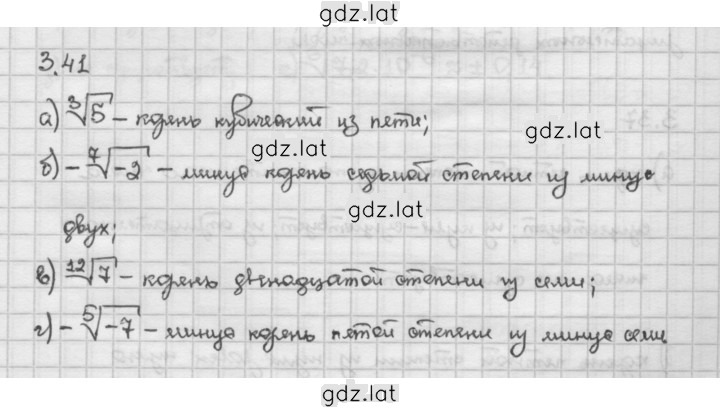 gdz.lat
3.41
а) ∛5 – корень кубический из пяти;
gdz.lat
б) – ⁷√-2 – минус корень седьмой степени из минус
gdz.lat
двух;
в) ¹²√7 – корень двенадцатой степени из семи;
gdz.lat
г) – ⁵√-7 – минус корень пятой степени из минус семи
gdz.lat